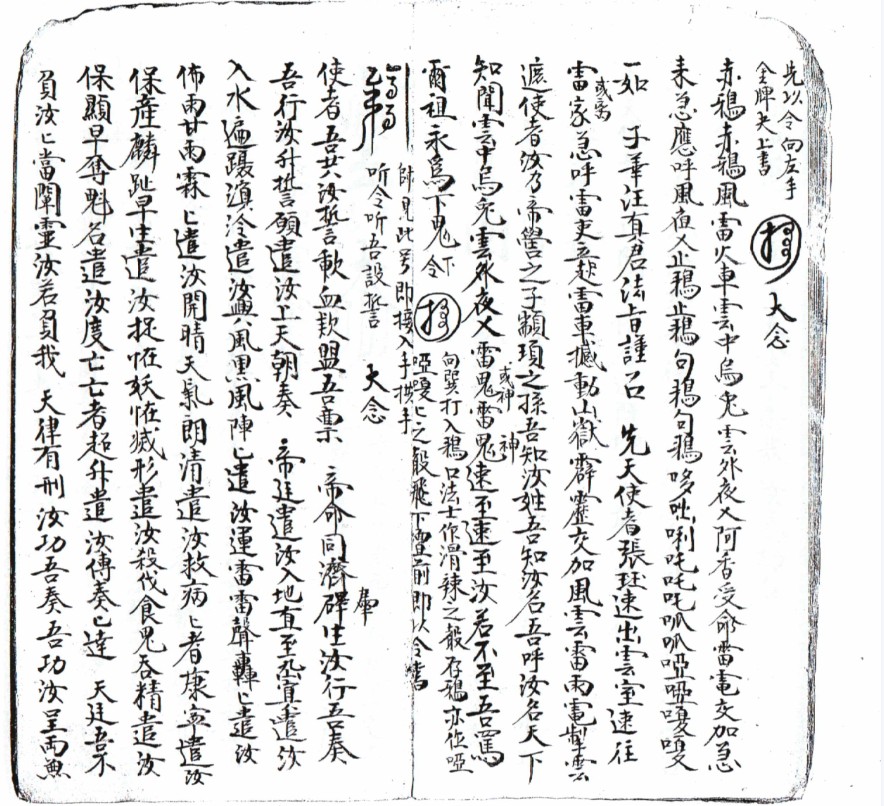 先以令向左手
金牌夹上書
大念
赤鴉赤鴉風雷火車雲中烏兎雲外夜乂阿香受命雷電交加急
来急應呼風夜乂止鴉止鴉句鴉句鴉哆咄唎吒吒吒呱呱啞啞嗄嗄
一如 子華汪真君法旨謹召 先天使者張珏速出雲室速往
或窩
雷家急呼雷吏立趂雷車撼動山嶽霹靂交加風雲雷雨電掣雲
遮使者汝乃帝嚳之子顓頊之孫吾知汝姓吾知汝名吾呼汝名天下
知聞雲中烏兎雲外夜乂雷鬼雷鬼速至速至汝若不至吾罵
或神 神
爾祖永爲下鬼 下令
向巽打入鴉口法士作渭辣之殺存鴉亦作啞
啞嗄匕之殺飛下壇前即以令書
師見此号即接入手拱手
听令听吾設誓 大念
使者吾共汝誓言歃血歃盟吾稟 帝命同濟群生汝行吾奏
吾行汝升誓願遣汝上天朝奏 帝廷遣汝入地直至丞冥遣汝
入水遍躡溟泠遣汝興風黑風陣匕遣汝運雷雷聲轟匕遣汝
佈雨甘雨霖匕遣汝開晴天氣朗清遣汝救病匕者康寧遣汝
保産麟趾早生遣汝捉怪妖怪滅形遣汝殺伐食鬼吞精遣汝
保顯早奪魁名遣汝度亡亡者超升遣汝傳奏匕達 天廷吾不
負汝匕當闡靈汝若負我 天律有刑汝功吾奏吾功汝呈両無